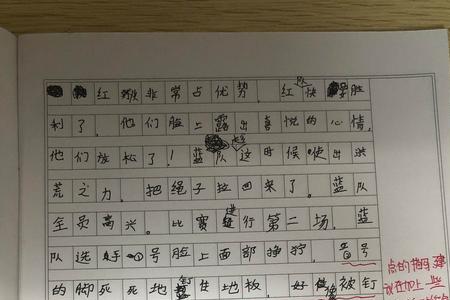 红队非常占优势,红队快要胜
利了。他们脸上露出喜悦的心情,
他们放松了!蓝队这时候使出洪
荒之力,把绳子拉回来了。蓝队
全员高兴。比赛进行第二场,蓝
队选手①号脸上面部狰狞,①号
的脚死死地钉住地板,好像被钉
点的描写建
议在加上一些